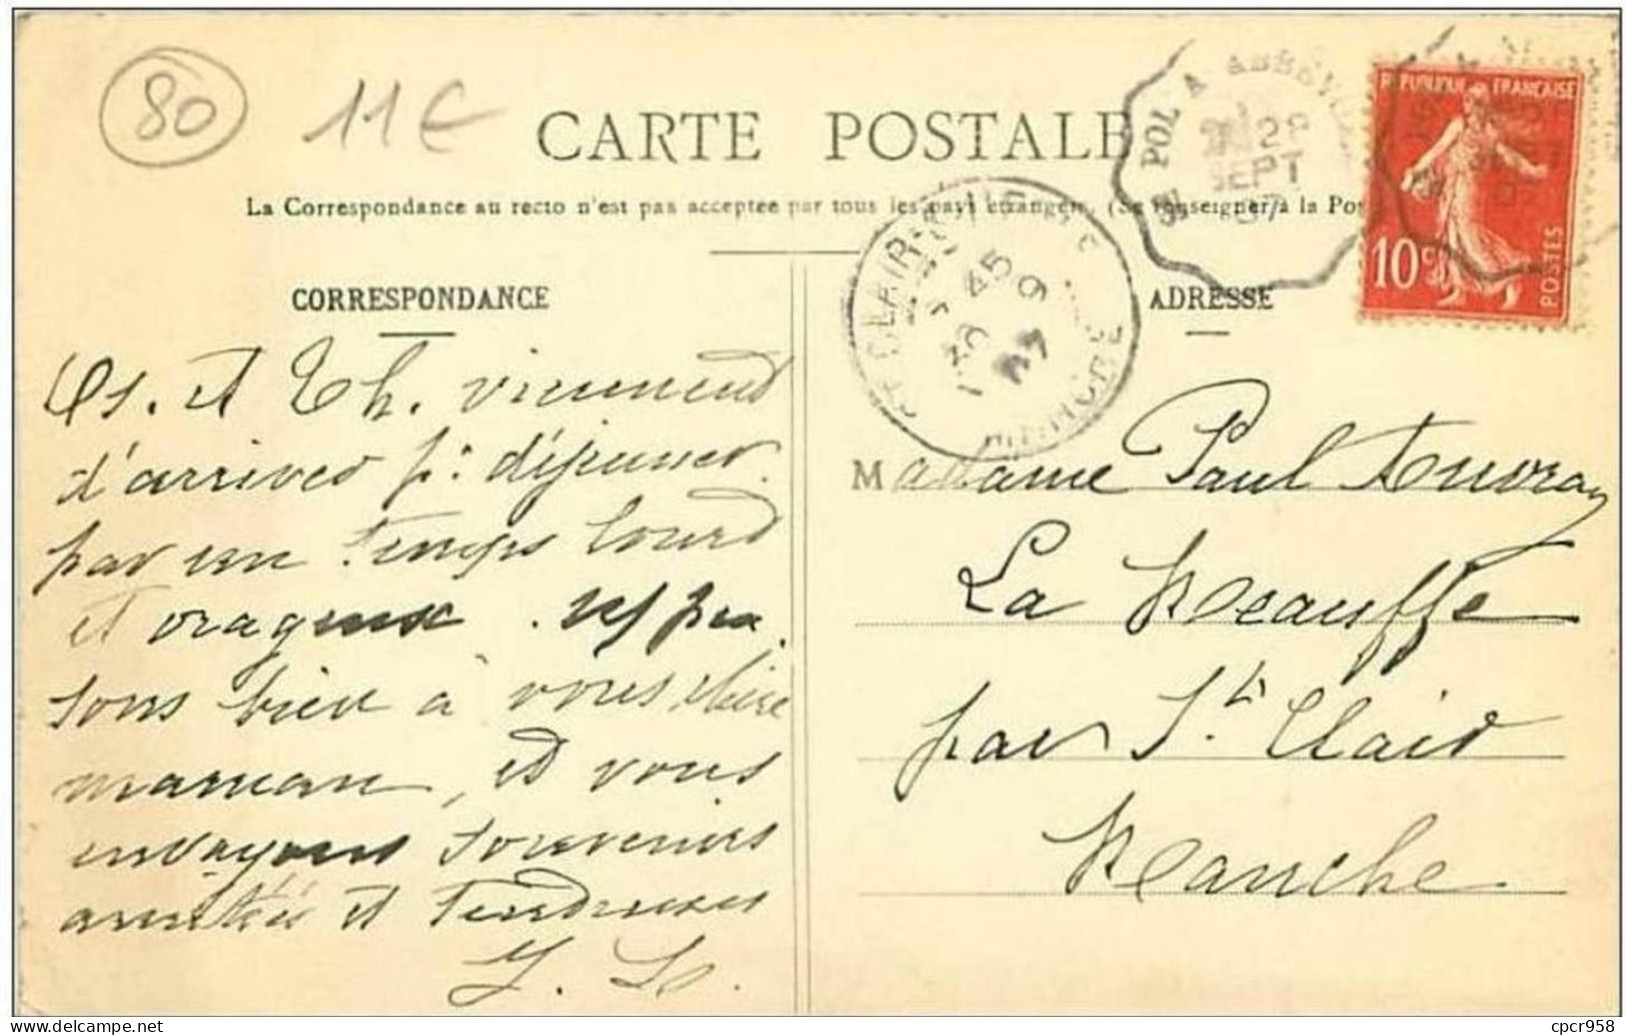 80
11€
CARTE POSTALE
La Correspondance au recto n'est pas acceptée par tous les pays étrangers (Se renseigner à la Pos
ST POL A ABBEVIL
SEPT
07
REPUBLIQUE FRANÇAISE
10c
POSTES
ST CLAIR
45
30 9
07
MANCHE
CORRESPONDANCE
ADRESSE
et Th. viennent
d'arriver pr. déjeuner
par un temps lourd
et orageux.
sons bien à vous chère
maman, et vous
envoyons souvenirs
amitiés et tendresses
Madame Paul Auvray
La Meauffe
par St. Clair
Manche
cpcr958
delcampe.net